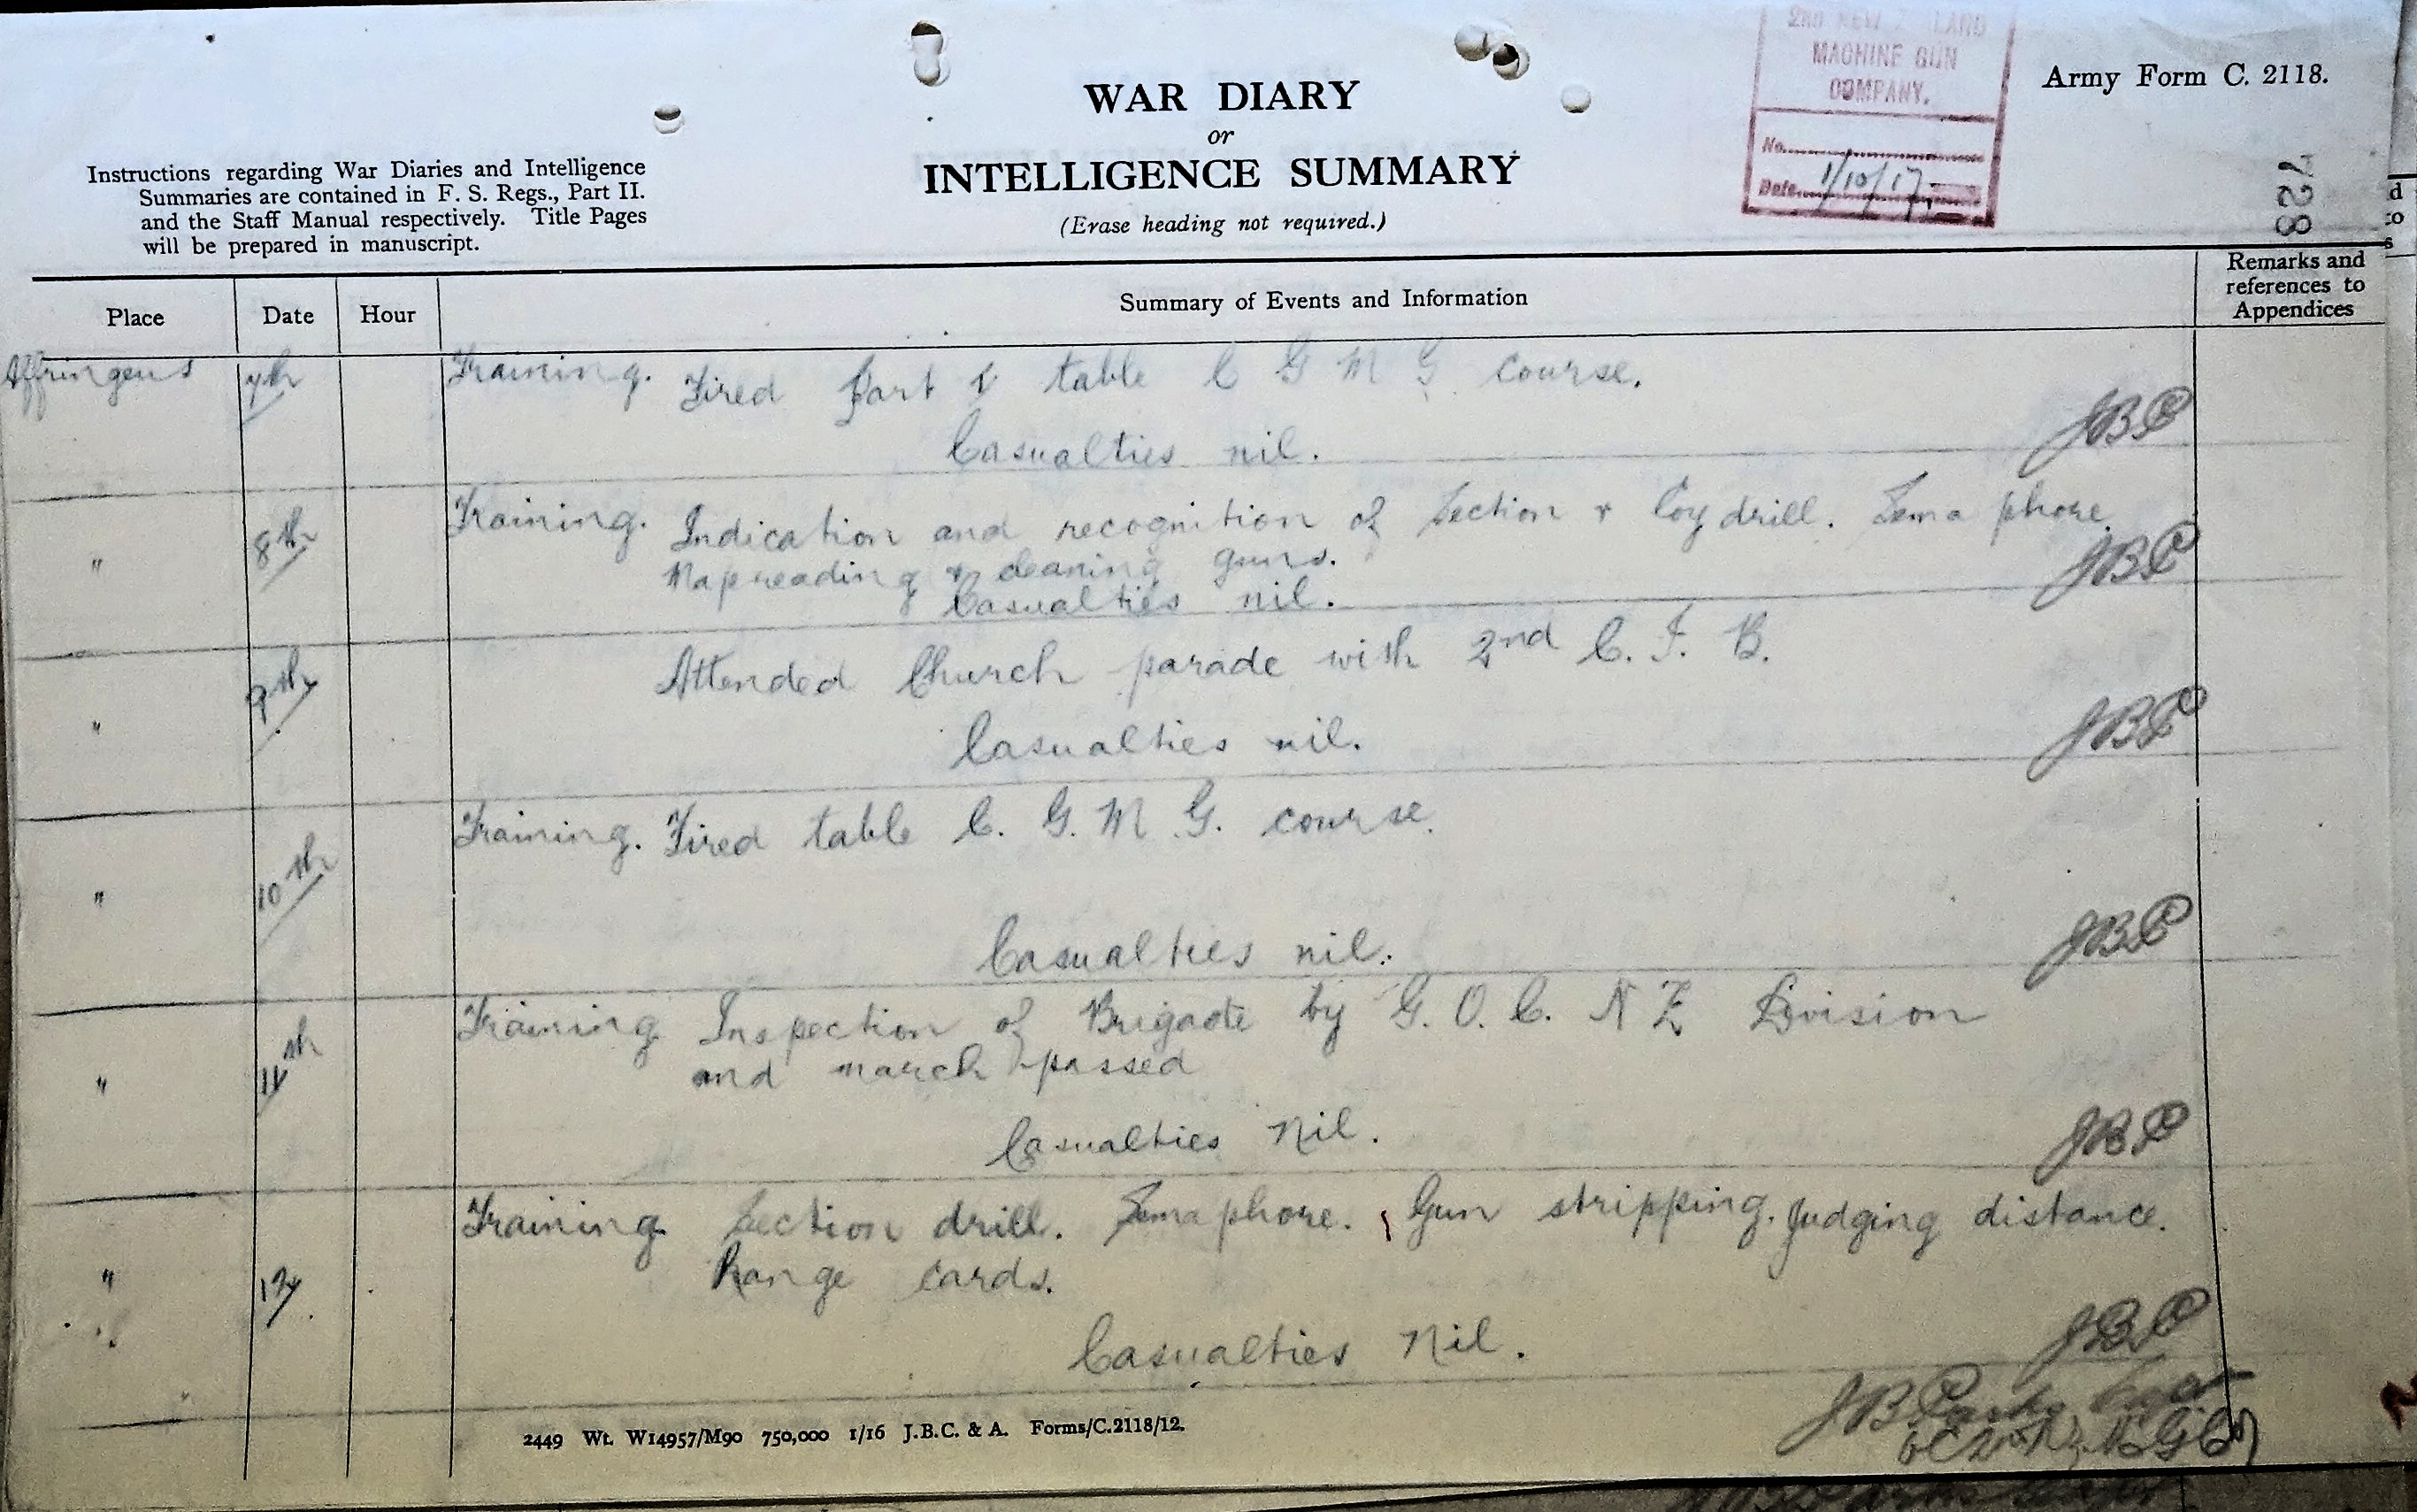 2ND NEW ZEALAND
MACHINE GUN
COMPANY.
No.
Date 1/10/17
Army Form C. 2118.
WAR DIARY
or
INTELLIGENCE SUMMARY
(Erase heading not required.)
Instructions regarding War Diaries and Intelligence
Summaries are contained in F. S. Regs., Part II.
and the Staff Manual respectively. Title Pages
will be prepared in manuscript.
728
d
to
s
Place Date Hour Summary of Events and Information Remarks and references to Appendices
Affringues 7th Training. Fired Part 1 table C G M G course.
Casualties nil. JBP
" 8th Training. Indication and recognition of Section & Coy drill. Semaphore.
Map reading & cleaning guns.
Casualties nil. JBP
" 9th Attended Church parade with 2nd C. I. B.
Casualties nil. JBP
" 10th Training. Fired table C. G. M. G. course.
Casualties nil. JBP
" 11th Training Inspection of Brigade by G. O. C. N Z Division
and march passed
Casualties Nil. JBP
" 12 Training Section drill. Semaphore. Gun stripping. Judging distance.
Range cards.
Casualties Nil. JBP
JB Parks Capt
OC 2nd NZ MG Coy
2449 Wt. W14957/M90 750,000 1/16 J.B.C. & A. Forms/C.2118/12.